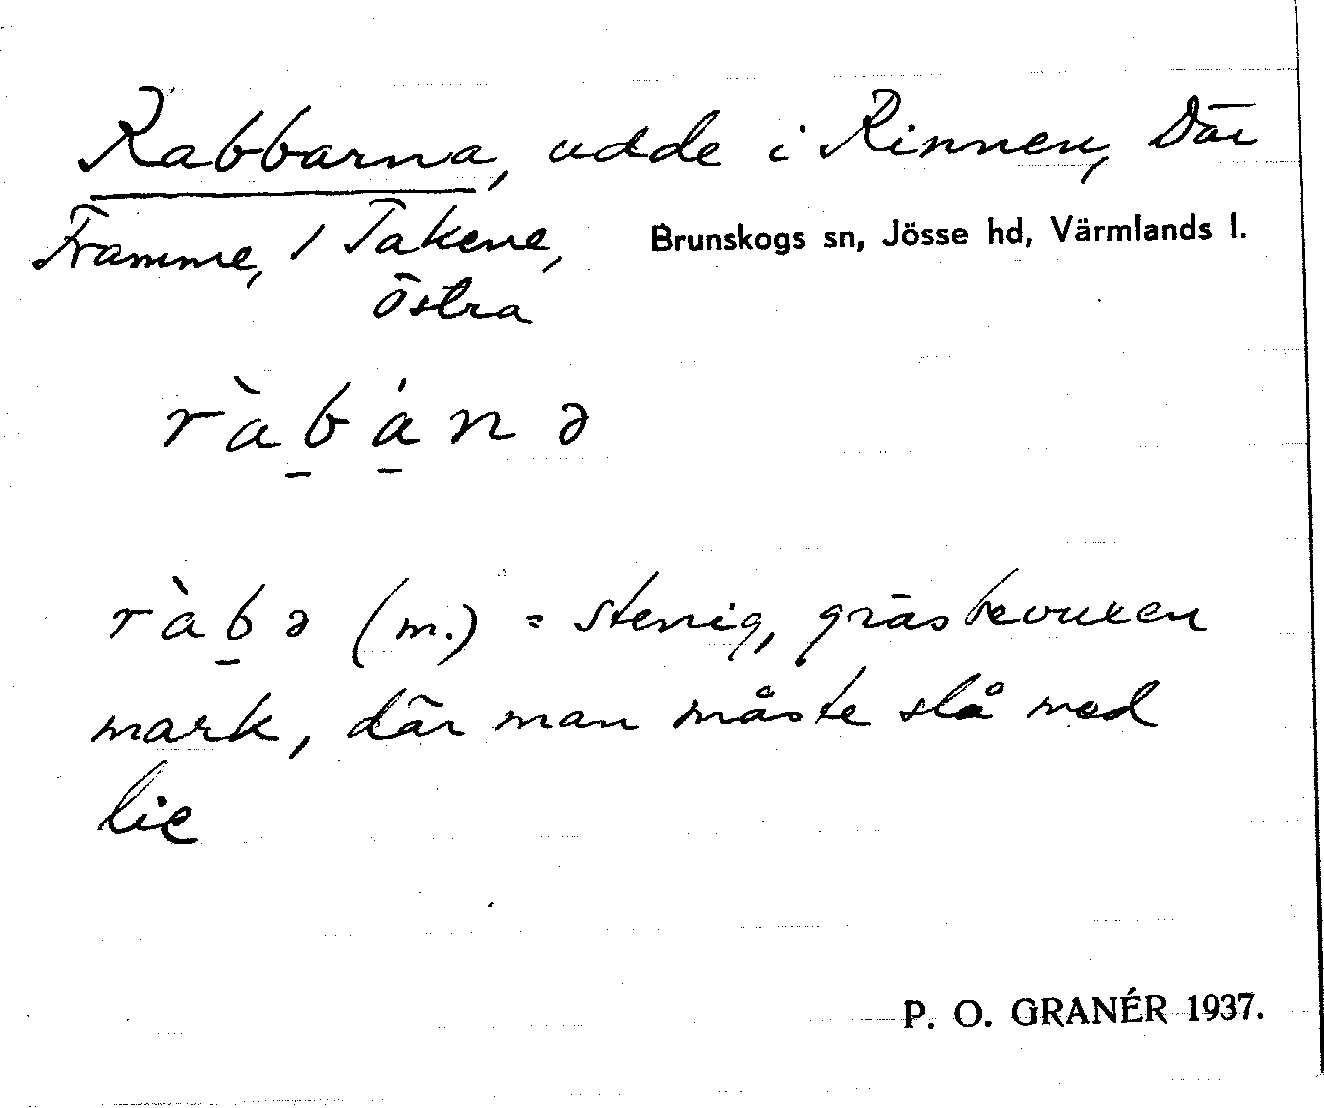 Rabbarna, udde i Rinnen, Där
Framme, / Takene, Brunskogs sn, Jösse hd, Värmlands l.
Östra
ràb̠á̠nə
ràb̠ə (m.) = stenig, gräsbevuxen
mark, där man måste slå med
lie
P. O. GRANÉR 1937.